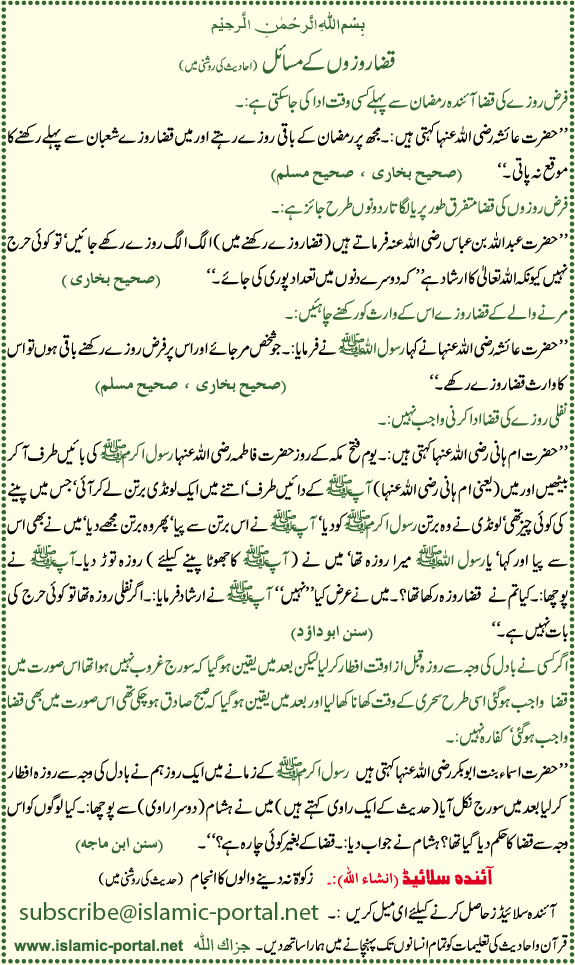 بِسْمِ اللهِ الرَّحْمٰنِ الرَّحِيْمِ
قضا روزوں کے مسائل (احادیث کی روشنی میں)
فرض روزے کی قضا آئندہ رمضان سے پہلے کسی وقت ادا کی جا سکتی ہے :۔
’’حضرت عائشہ رضی اللہ عنہا کہتی ہیں :۔ مجھ پر رمضان کے باقی روزے رہتے اور میں قضا روزے شعبان سے پہلے رکھنے کا
موقع نہ پاتی۔‘‘ (صحیح بخاری ، صحیح مسلم)
فرض روزوں کی قضا متفرق طور پر یا لگاتار دونوں طرح جائز ہے :۔
’’حضرت عبداللہ بن عباس رضی اللہ عنہ فرماتے ہیں (قضا روزے رکھنے میں) الگ الگ روزے رکھے جائیں‘ تو کوئی حرج
نہیں کیونکہ اللہ تعالیٰ کا ارشاد ہے’’ کہ دوسرے دنوں میں تعداد پوری کی جائے۔‘‘ (صحیح بخاری )
مرنے والے کے قضا روزے اس کے وارث کو رکھنے چاہئیں :۔
’’حضرت عائشہ رضی اللہ عنہا نے کہا رسول اللہ ﷺ نے فرمایا :۔ جو شخص مر جائے اور اس پر فرض روزے رکھنے باقی ہوں تو اس
کا وارث قضا روزے رکھے۔‘‘ (صحیح بخاری ، صحیح مسلم)
نفلی روزے کی قضا ادا کرنی واجب نہیں :۔
’’حضرت ام ہانی رضی اللہ عنہا کہتی ہیں :۔ یوم فتح مکہ کے روز حضرت فاطمہ رضی اللہ عنہا رسول اکرم ﷺ کی بائیں طرف آ کر
بیٹھیں اور میں (یعنی ام ہانی رضی اللہ عنہا) آپ ﷺ کے دائیں طرف‘ اتنے میں ایک لونڈی برتن لے کر آئی‘ جس میں پینے
کی کوئی چیز تھی‘ لونڈی نے وہ برتن رسول اکرم ﷺ کو دیا‘ آپ ﷺ نے اس برتن سے پیا‘ پھر وہ برتن مجھے دیا‘ میں نے بھی اس
سے پیا اور کہا‘ یا رسول اللہ ﷺ میرا روزہ تھا‘ میں نے ( آپ ﷺ کا جھوٹا پینے کیلئے ) روزہ توڑ دیا۔ آپ ﷺ نے
پوچھا :۔ کیا تم نے قضا روزہ رکھا تھا؟۔ میں نے عرض کیا’’ نہیں‘‘ آپ ﷺ نے ارشاد فرمایا :۔ اگر نفلی روزہ تھا تو کوئی حرج کی
بات نہیں ہے۔‘‘ (سنن ابوداؤد)
اگر کسی نے بادل کی وجہ سے روزہ قبل از وقت افطار کر لیا لیکن بعد میں یقین ہو گیا کہ سورج غروب نہیں ہوا تھا اس صورت میں
قضا واجب ہو گئی اسی طرح سحری کے وقت کھانا کھا لیا اور بعد میں یقین ہو گیا کہ صبح صادق ہو چکی تھی اس صورت میں بھی قضا
واجب ہو گئی‘ کفارہ نہیں :۔
’’حضرت اسماء بنت ابوبکر رضی اللہ عنہا کہتی ہیں رسول اکرم ﷺ کے زمانے میں ایک روز ہم نے بادل کی وجہ سے روزہ افطار
کر لیا بعد میں سورج نکل آیا (حدیث کے ایک راوی کہتے ہیں) میں نے ہشام (دوسرا راوی) سے پوچھا :۔ کیا لوگوں کو اس
وجہ سے قضا کا حکم دیا گیا تھا؟ ہشام نے جواب دیا :۔ قضا کے بغیر کوئی چارہ ہے؟‘‘۔ (سنن ابن ماجه)
آئندہ سلائیڈ (انشاء الله) :۔ زکوٰۃ نہ دینے والوں کا انجام (حدیث کی روشنی میں)
آئندہ سلائیڈز حاصل کرنے کیلئے ای میل کریں :۔ subscribe@islamic-portal.net
قرآن و احادیث کی تعلیمات کو تمام انسانوں تک پہنچانے میں ہمارا ساتھ دیں۔ جزاك الله www.islamic-portal.net